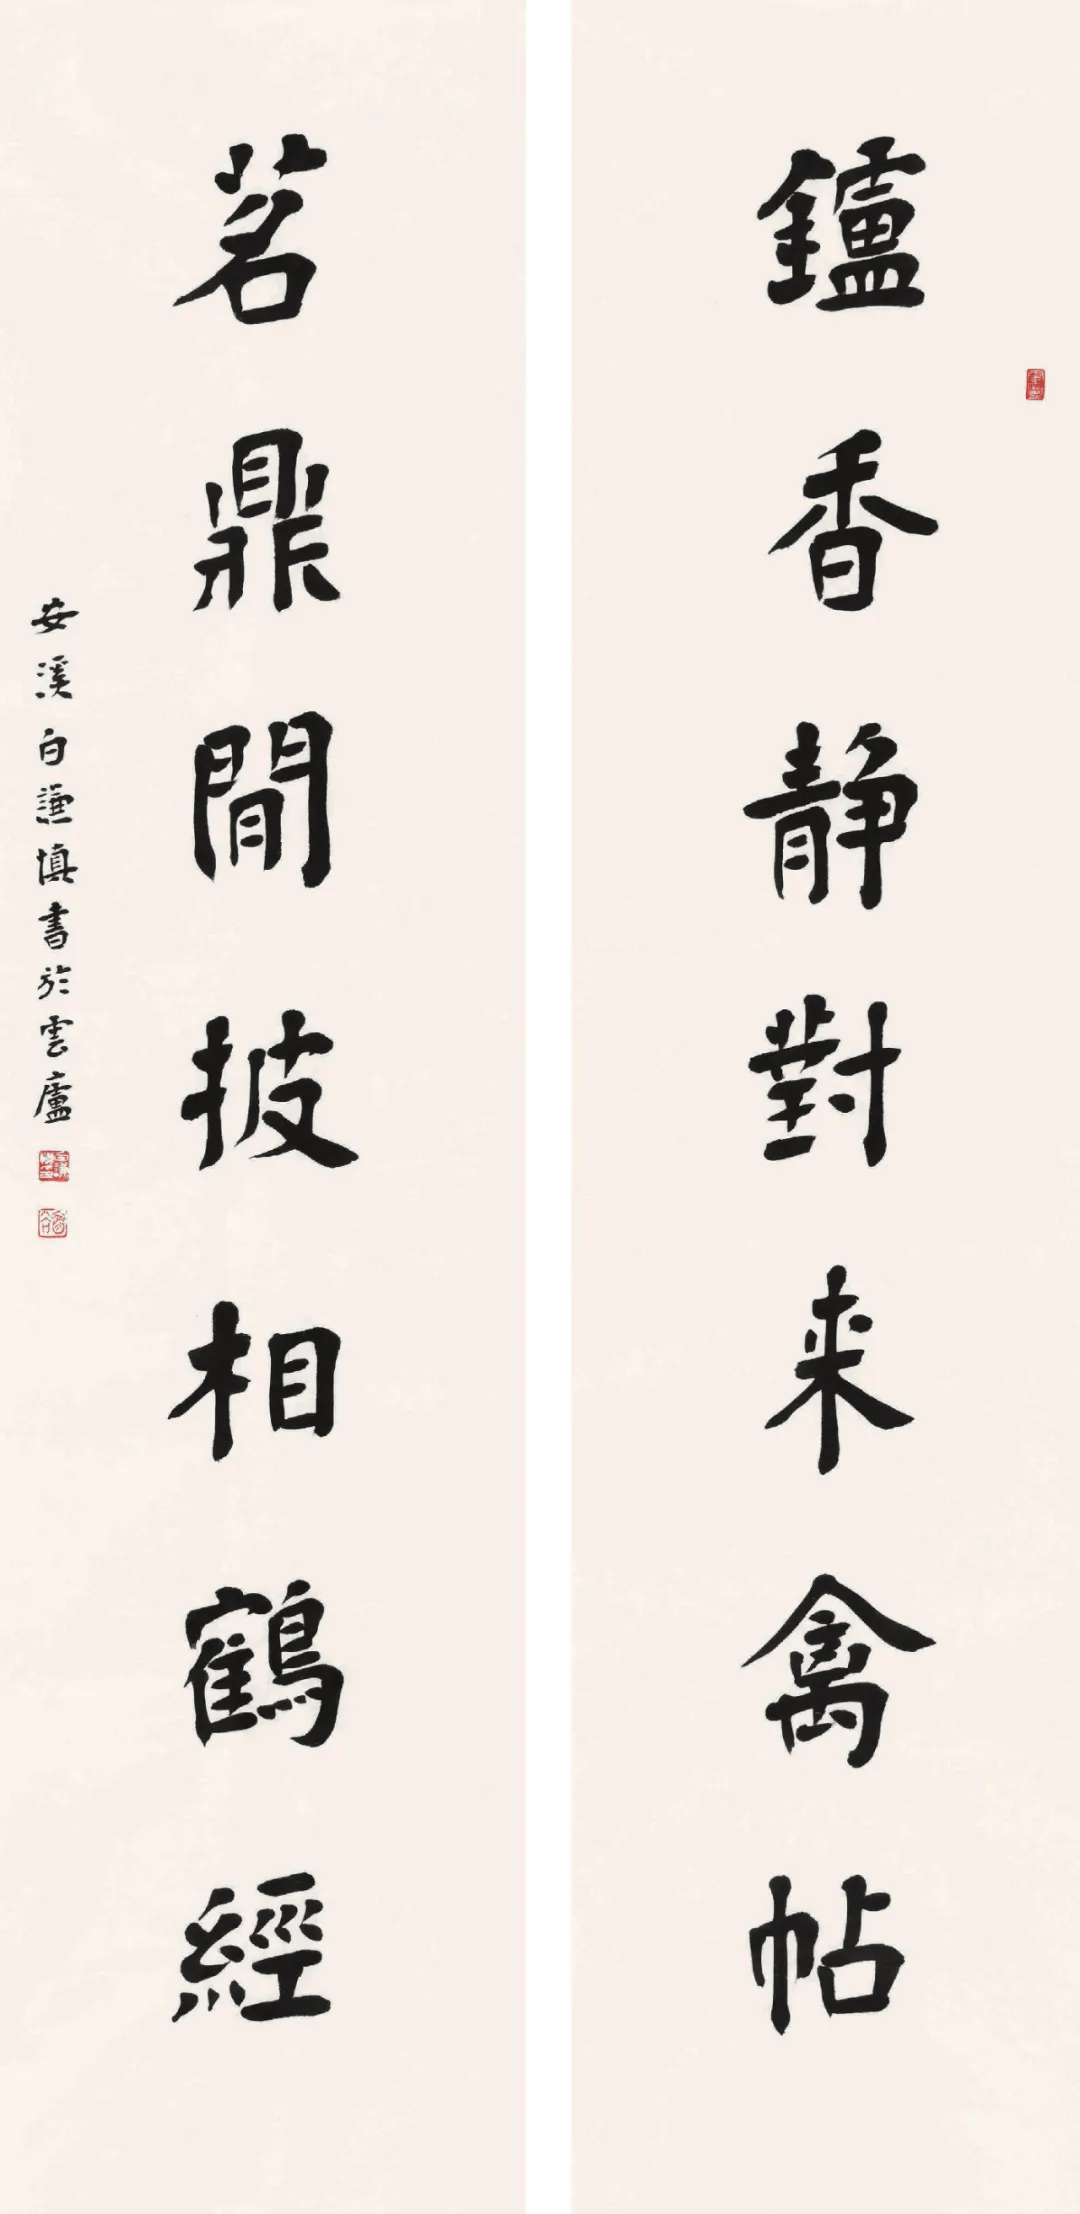 鑪香静對来禽帖
茗鼎閒披相鶴經
安溪白謙慎書於雲廬